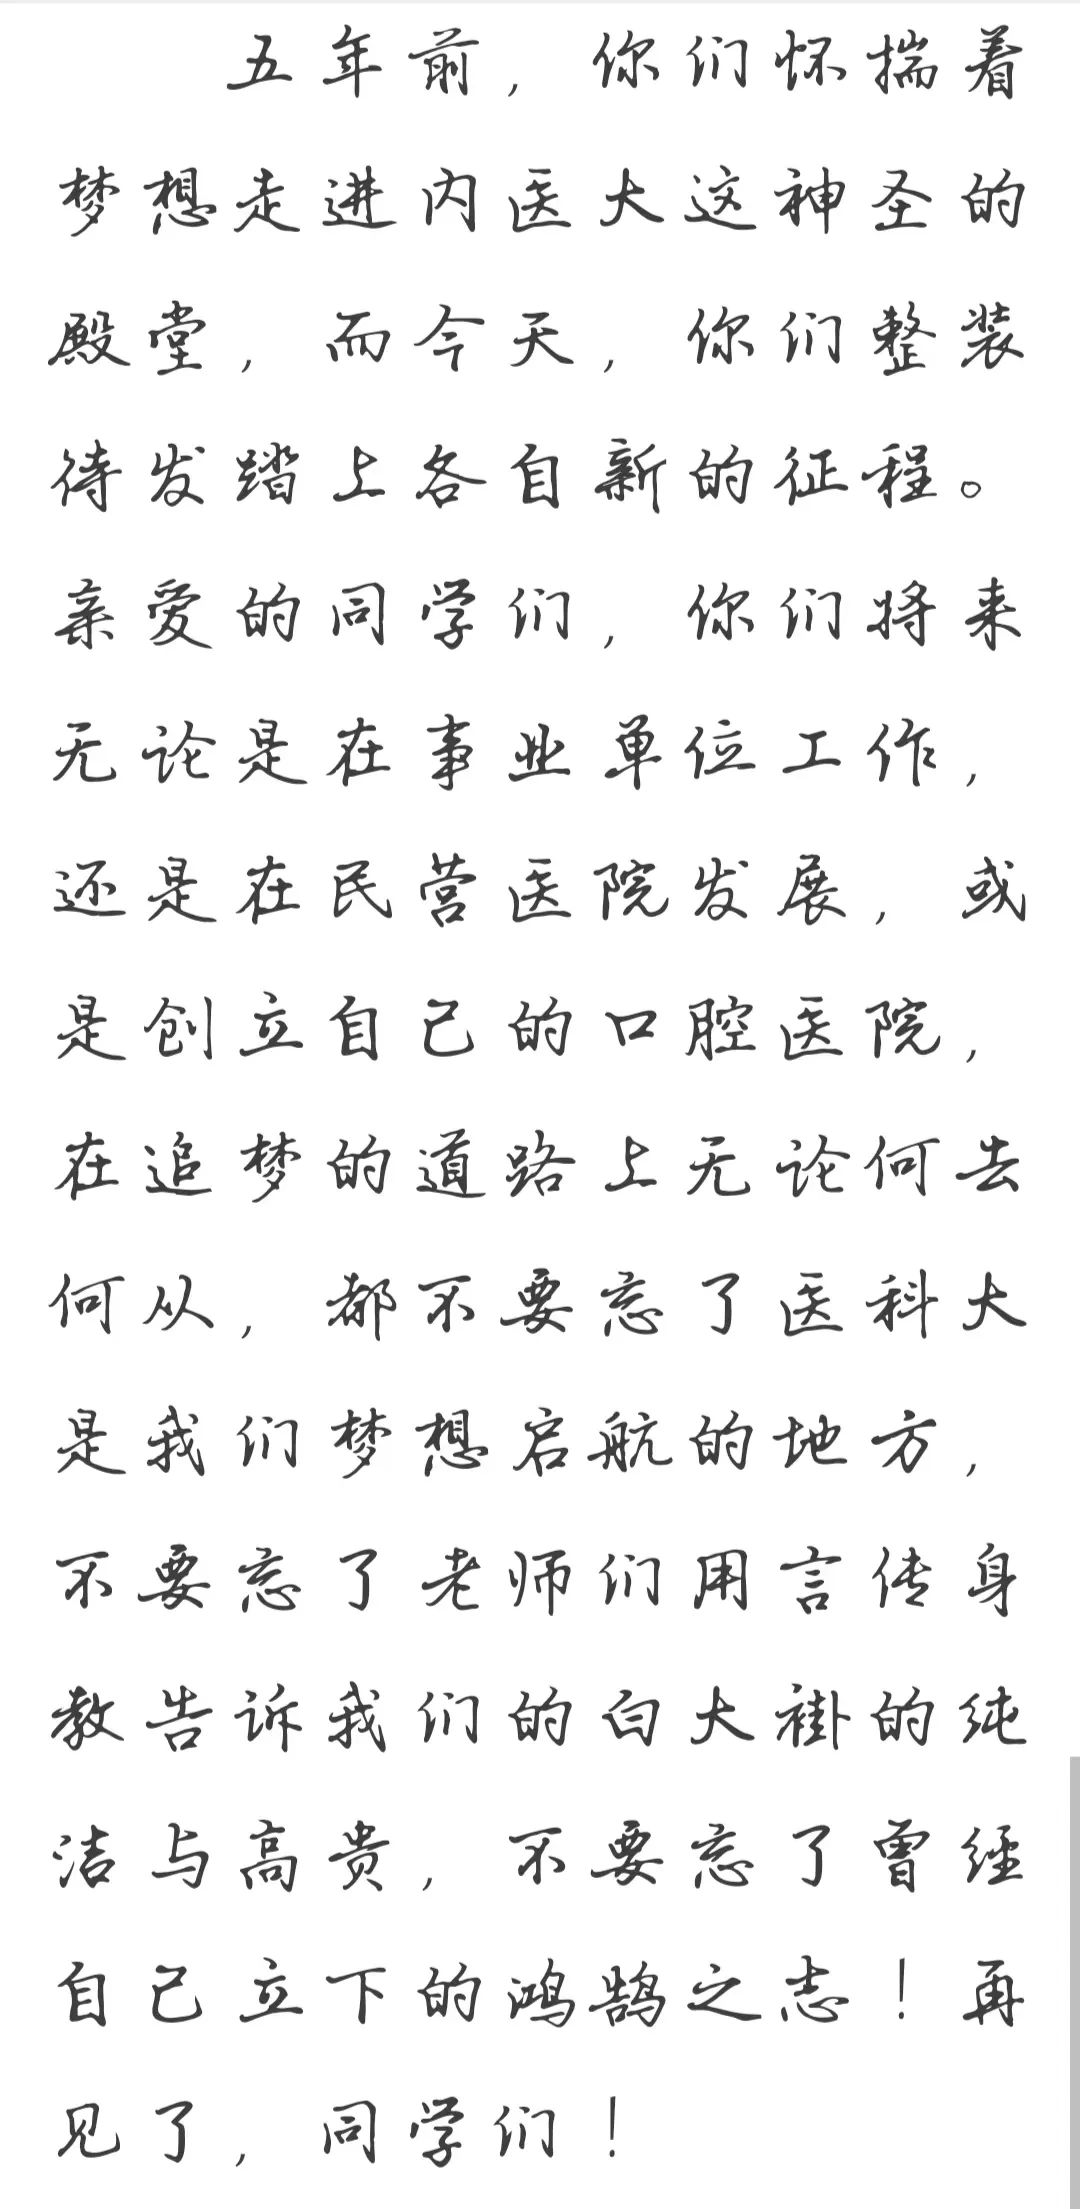 五年前，你们怀揣着
梦想走进内医大这神圣的
殿堂，而今天，你们整装
待发踏上各自新的征程。
亲爱的同学们，你们将来
无论是在事业单位工作，
还是在民营医院发展，或
是创立自己的口腔医院，
在追梦的道路上无论何去
何从，都不要忘了医科大
是我们梦想启航的地方，
不要忘了老师们用言传身
教告诉我们的白大褂的纯
洁与高贵，不要忘了曾经
自己立下的鸿鹄之志！再
见了，同学们！